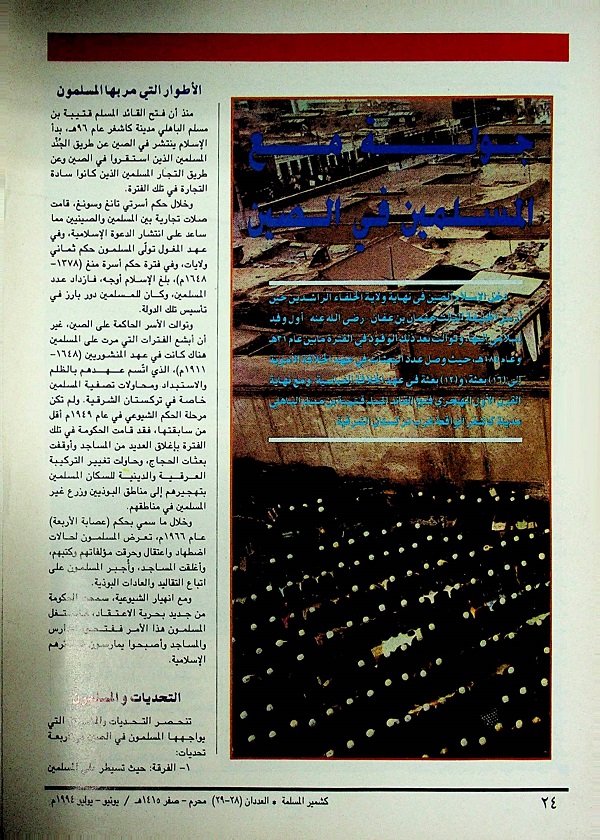 جولة مع
المسلمين في الصين
دخل الإسلام الصين في نهاية ولاية الخلفاء الراشدين حين
أرسل الخليفة الثالث عثمان بن عفان رضي الله عنه أول وفد
إسلامي إليها، وتوالت بعد ذلك الوفود في الفترة ما بين عام ٣١هـ
وعام ١٨٤هـ، حيث وصل عدد البعثات في عهد الخلافة الأموية
إلى (١٦) بعثة، و(١٢) بعثة في عهد الخلافة العباسية. ومع نهاية
القرن الأول الهجري فتح القائد المسلم قتيبة بن مسلم الباهلي
مدينة كاشغر الواقعة في تركستان الشرقية.
الأطوار التي مر بها المسلمون
منذ أن فتح القائد المسلم قتيبة بن
مسلم الباهلي مدينة كاشغر عام ٩٦هـ، بدأ
الإسلام ينتشر في الصين عن طريق الجُنْد
المسلمين الذين استقروا في الصين وعن
طريق التجار المسلمين الذين كانوا سادة
التجارة في تلك الفترة.
وخلال حكم أسرتي تانغ وسونغ، قامت
صلات تجارية بين المسلمين والصينيين مما
ساعد على انتشار الدعوة الإسلامية، وفي
عهد المغول تولّى المسلمون حكم ثماني
ولايات، وفي فترة حكم أسرة منغ (١٣٧٨-
١٦٤٨م)، بلغ الإسلام أوجه، فازداد عدد
المسلمين، وكان للمسلمين دور بارز في
تأسيس تلك الدولة.
وتوالت الأسر الحاكمة على الصين، غير
أن أبشع الفترات التي مرت على المسلمين
هناك كانت في عهد المنشوريين (١٦٤٨-
١٩١١م)، الذي اتّسم عهدهم بالظلم
والاستبداد ومحاولات تصفية المسلمين
خاصة في تركستان الشرقية. ولم تكن
مرحلة الحكم الشيوعي في عام ١٩٤٩م أقل
من سابقتها، فقد قامت الحكومة في تلك
الفترة بإغلاق العديد من المساجد وأوقفت
بعثات الحجاج، وحاولت تغيير التركيبة
العرقية والدينية للسكان المسلمين
بتهجيرهم إلى مناطق البوذيين وزرع غير
المسلمين في مناطقهم.
وخلال ما سمي بحكم (عصابة الأربعة)
عام ١٩٦٦م، تعرض المسلمون لحالات
اضطهاد واعتقال وحرقت مؤلفاتهم وكتبهم،
وأغلقت المساجد، وأُجبر المسلمون على
اتباع التقاليد والعادات البوذية.
ومع انهيار الشيوعية، سمحت الحكومة
من جديد بحرية الاعتقاد، فاستغل
المسلمون هذا الأمر ففتحوا المدارس
والمساجد وأصبحوا يمارسون شعائرهم
الإسلامية.
التحديات والمسلمون
تنحصر التحديات التي
يواجهها المسلمون في الصين في أربعة
تحديات:
١- الفرقة: حيث تسيطر على المسلمين
٢٤
كشمير المسلمة • العددان (٢٨-٢٩) محرم - صفر ١٤١٥هـ / يونيو - يوليو ١٩٩٤م